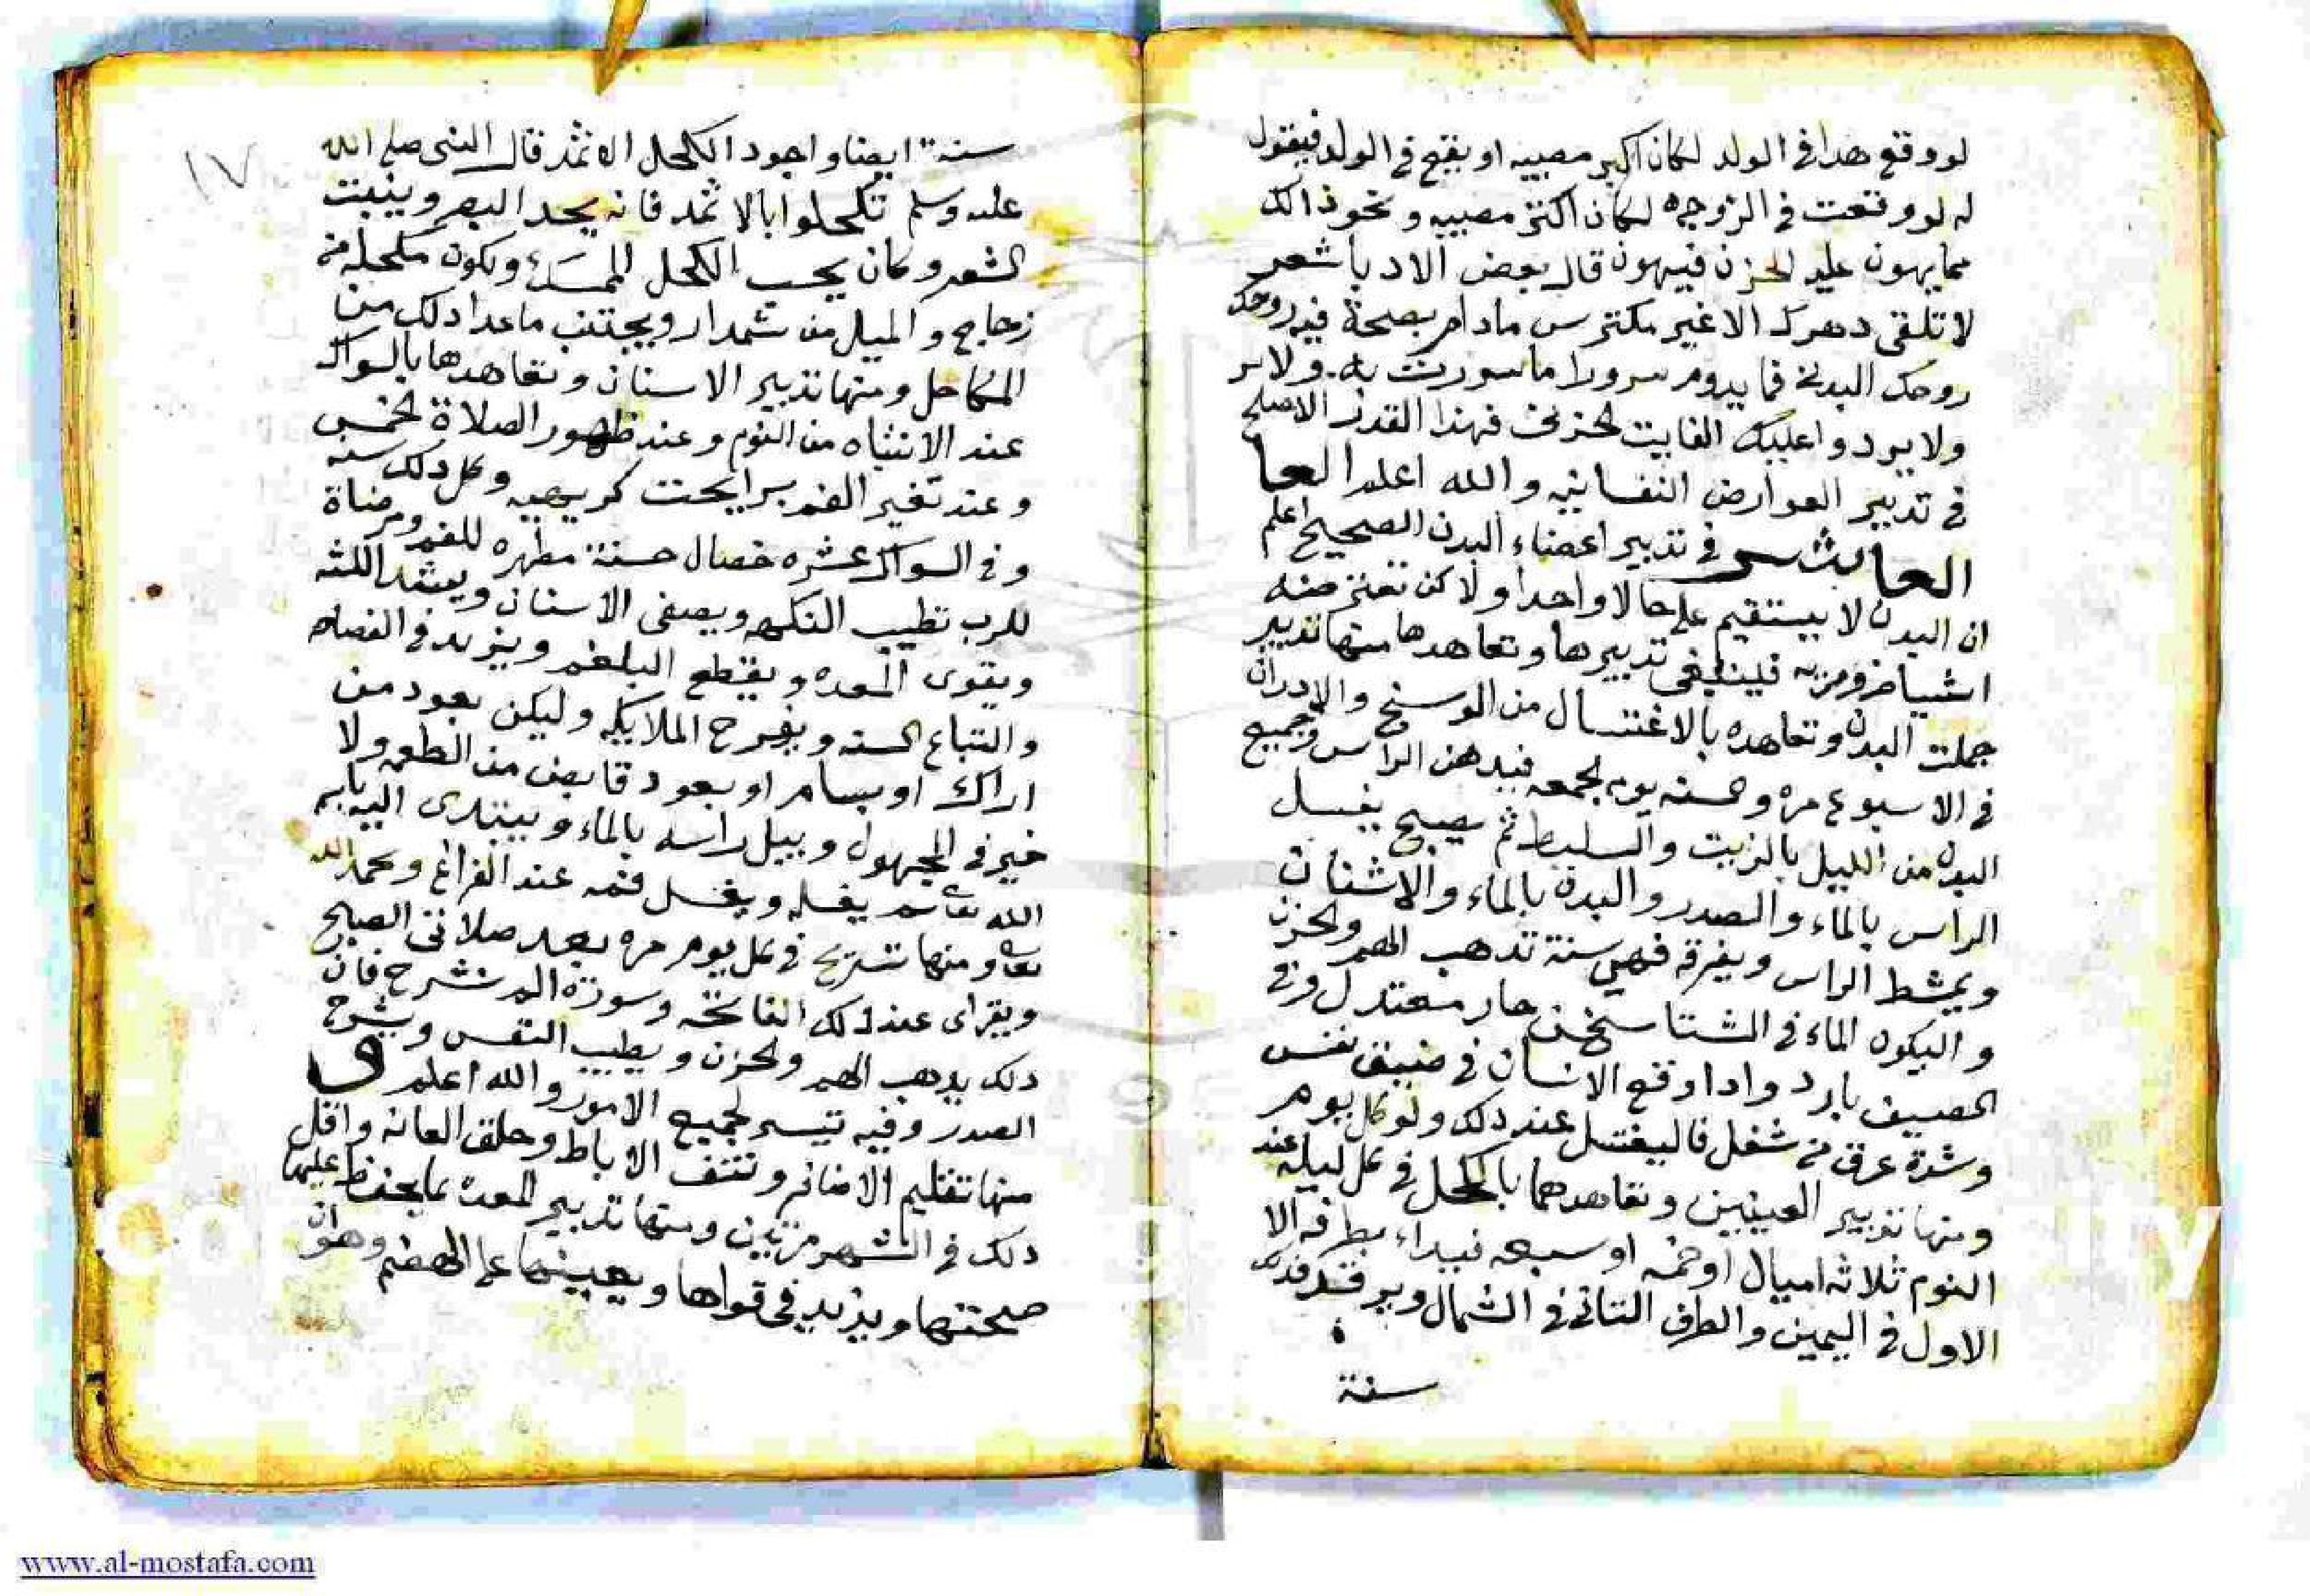 لو وقع هدا في الولد لكان اكبر مصيبه او يقع في الولد فيقول
له لو وقعت في الزوجه لكان اكثر مصيبه ونحو ذالك
مما يهون عليه الحزن فيهون قال بعض الادبا شعر
لا تلقى دهرك الا غير مكترس مادام بصحة فيه روحك
روحك البدن فما يدوم سرورا ما سررت به ولا ير
ولا يردوا عليك الفايت الحزن فهذا القدر الاصلح
في تدبير العوارض النفسانيه والله اعلم العا
العاشر في تدبير اعضاء البدن الصحيح اعلم
ان البدن لا يستقيم على حالا واحدا ولاكن تعتز منه
اشيا ضروريه فينبغي تدبيرها وتعاهدها منها تدبير
جملت البدن وتعاهده بالاغتسال من الوسخ والادران
في الاسبوع مره وحسنه يوم الجمعه فيدهن الراس وجميع
البدن من الليل بالزيت والسليط ثم يصبح يغسل
الراس بالماء والصدر والبدن بالماء والاشنان
ويمشط الراس ويفرقه فهي سنة تذهب الهم والحزن
واليكون الماء في الشتا سخن حار معتدل وفي
الصيف بارد وادا وقع الانسان في ضيق نفس
وشدة عرق من شغل فاليغتسل عند ذلك ولو كل يوم
ومنها تدبير العينين وتعاهدهما بالكحل في كل ليله عند
النوم ثلاثه اميال او خمسه او سبعه فيبداء بطرفه الا
الاول في اليمين والطرف التاني في الشمال ويرقد فدلك
سنة
١٧
سنة ايضا واجود الكحل الاثمد قال النبي صلى الله
عليه وسلم تكحلوا بالاثمد فانه يحد البصر وينبت
الشعر وكان يحب الكحل للمساء ويكون مكحله من
زجاج والميل من شمدار ويجتنب ماعدا دلك من
المكاحل ومنها تدبير الاسنان وتعاهدها بالسواك
عند الانتباه من النوم وعند ظهور الصلاة الخمس
وعند تغير الفم برايحت كريهيه وكل دلك سنه
وفي السواك عشره خصال حسنة مطهره للفم ومرضاة
للرب تطيب النكهه ويصفى الاسنان ويشد اللثه
ويقوى المعده ويقطع البلغم ويزيد في الفصاحه
والتباع السنه ويفرح الملايكه وليكن بعود من
اراك او بسام او بعود قابض من الطعم ولا
خير في المجهول ويبل راسه بالماء ويبتدى اليه باسم
الله تعالى ثم يغسله ويغسل فمه عند الفراغ ويحمد الله
تعالى ومنها تسريح في كل يوم مره بعد صلاتي الصبح
ويقراى عند ذلك الفاتحه وسورة الم نشرح فان
دلك يدهب الهم والحزن ويطيب النفس ويشرح
الصدر وفيه تيسير لجميع الامور والله اعلم
منها تقليم الاضافر ونتف الاباط وحلق العانه واقل
دلك في الشهر مرتين ومنها تدبير المعده بما يحفظ عليها
صحتها ويزيد في قواها ويعينها على الهضم وهو ان
www.al-mostafa.com